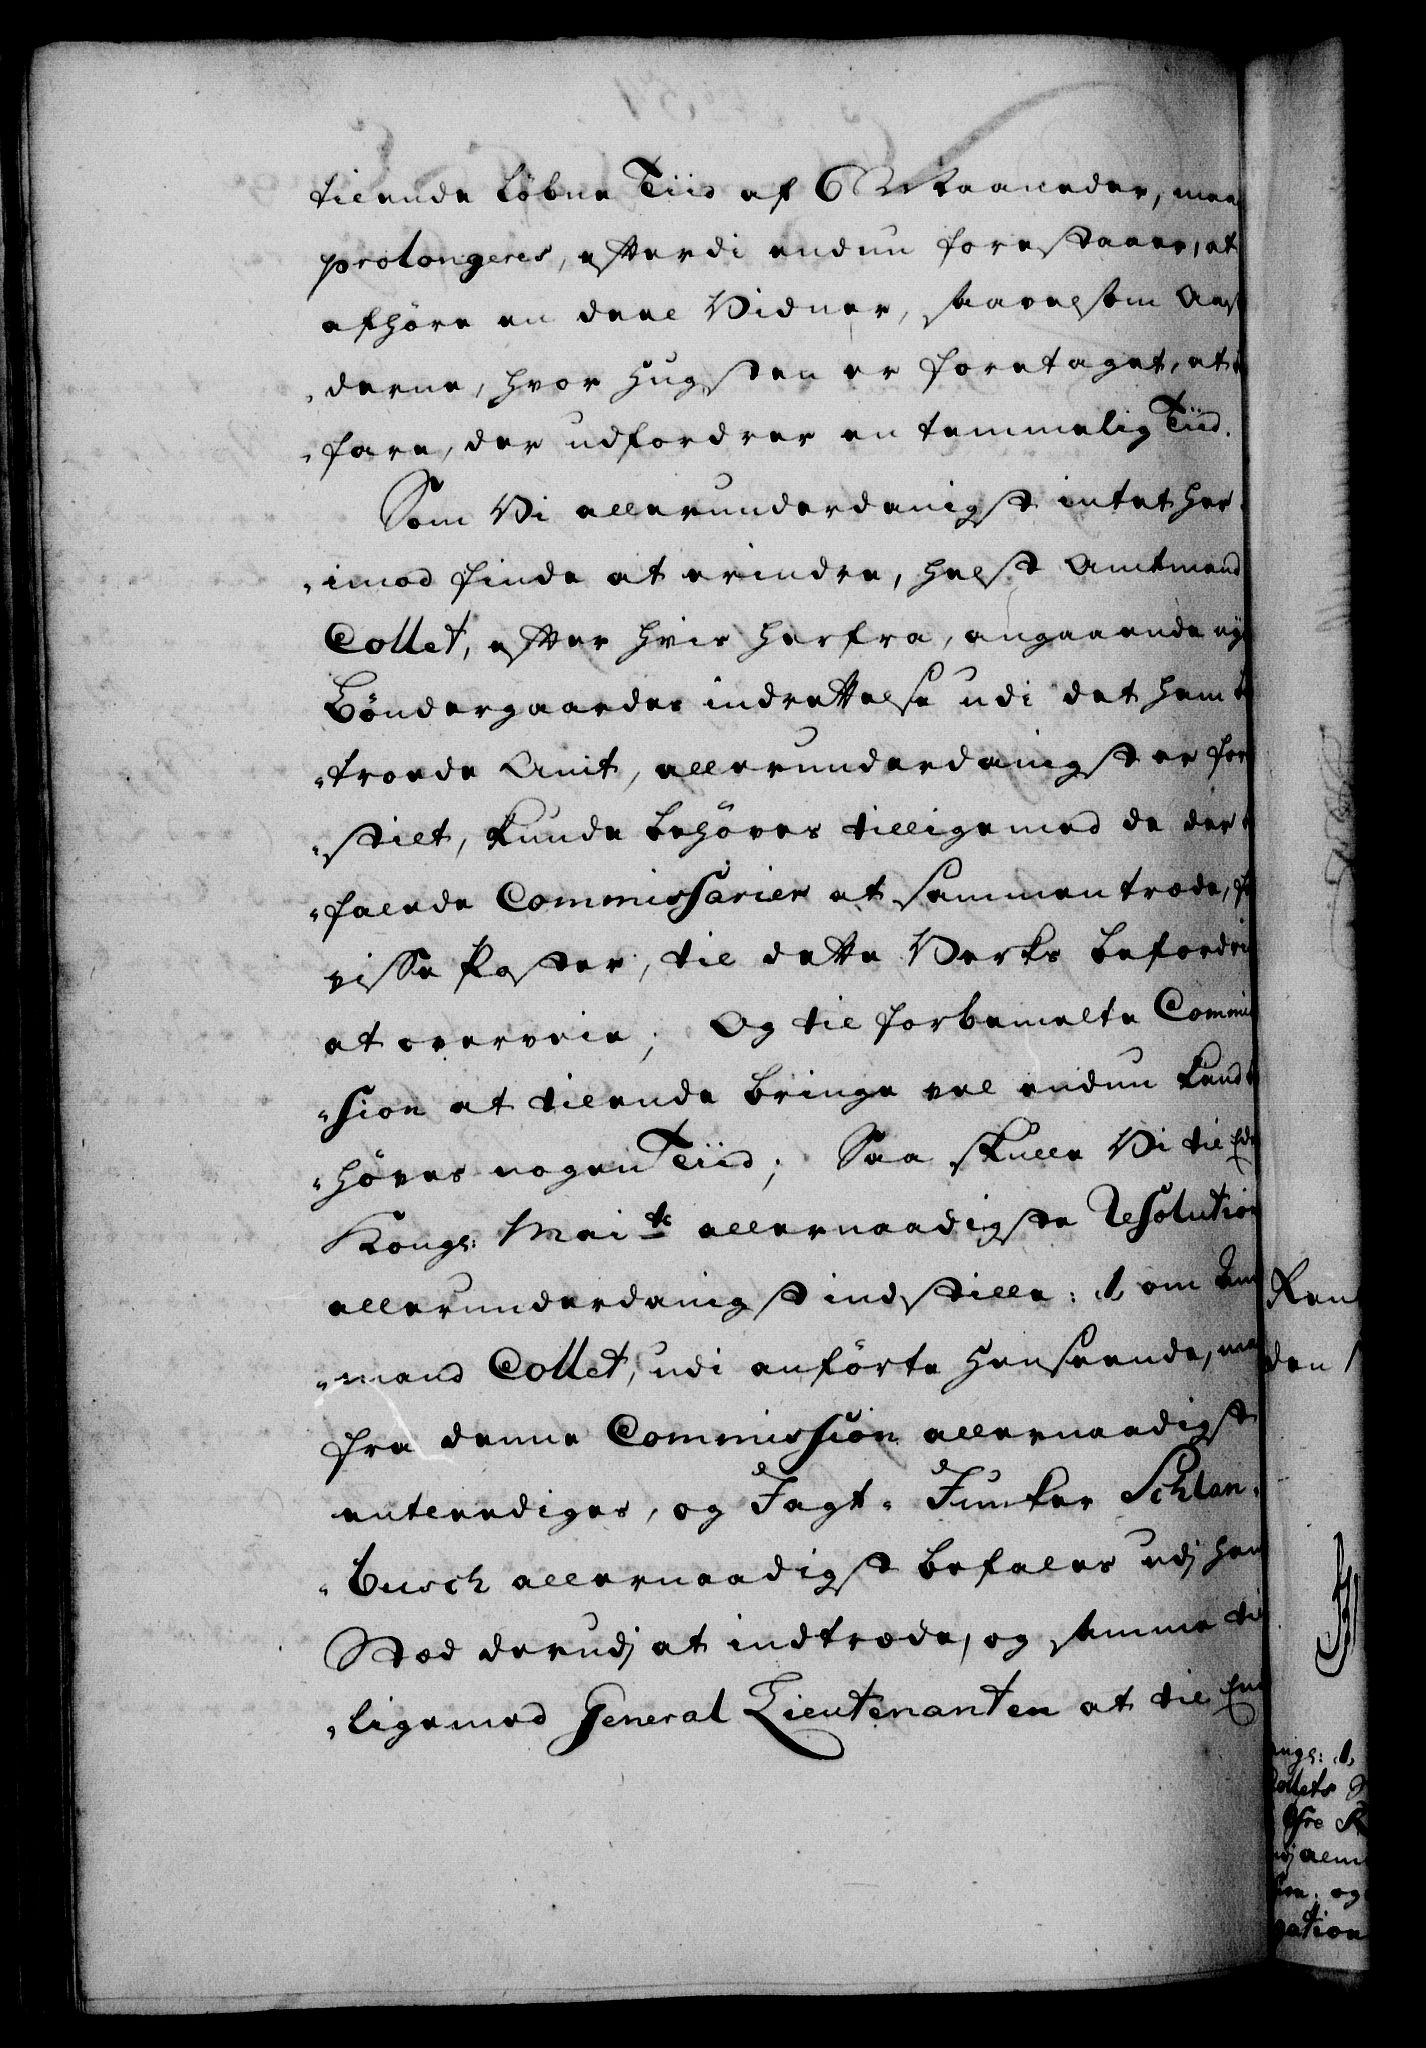 tilende løbne Tiid af 6 Maaneder, maa
prolongeres, efterdi endnu forestaaer, at
afhøre en deel Vidner, saavelsom Aast
„derne, hvor Hugsten er foretaget, at
„fare, der udfordrer en temmelig Tiid.
Som Vi allerunderdanigst intet her
„imod finde at erindre, helst Amtmand
Collet, efter hvis herfra, angaaende nye
Bøndergaardes indrettelse udi det ham be
„troede Amt, allerunderdanigst er fore
„stilt, kunde behøves tilligemed de der be
„falede Commissarier at sammentræde, for
visse Poster, til dette Verks befordring
at overveie; Og til forbemelte Commis
„sion at tilende bringe vel endnu kand be
„høves nogen Tiid; Saa skulle Vi til Eders
Kongl: Mai<u>ts</u> allernaadigste Resolution
allerunderdanigst indstille: 1, om Amt
„mand Collet, udi anførte Henseende, maa
fra denne Commission allernaadigst
entlediges, og Jagt-Junker Schlan-
„busch allernaadigst befales udj hans
Stæd derudj at indtræde, og samme til
„ligemed General Lieutenanten at til End
Ren
den
ngl: 1,
Collets
og
gation